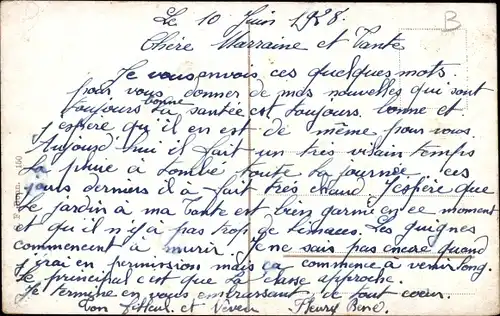 Le 10 Juin 1928.
B
Chère Marraine et Tante
Je vous envois ces quelques mots
pour vous donner de mes nouvelles qui sont
toujours bonne la santée est toujours bonne et
j'espère qu'il en est de même pour vous.
Aujourd'hui il fait un très vilain temps
La pluie à tombé toute la journée, ces
jours derniers il à fait très chaud. J'espère que
le jardin à ma Tante est bien garni en ce moment
et qu'il n'y à pas trop de limaces. Les guignes
commencent à murir. Je ne sais pas encore quand
j'irai en permission mais ça commence à venir long.
Le principal c'est que la classe approche.
Je termine en vous embrassant de tout coeur.
Fleury René.